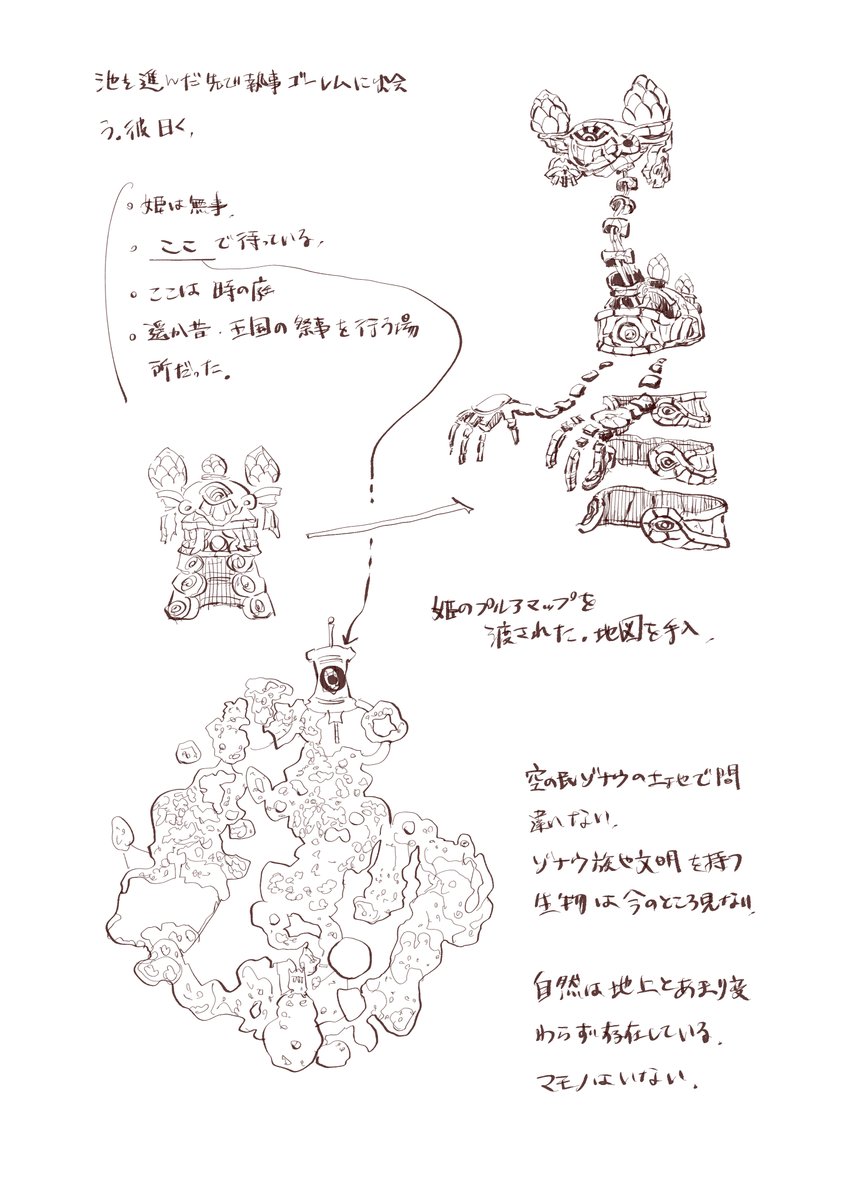 池を進んだ先で執事ゴーレムに出会
う。彼曰く、
姫は無事、
ここで待っている、
ここは時の庭
遥か昔、王国の祭事を行う場
所だった。
姫のプルアマップを
渡された。地図を手入、
空の民ゾナウの土地で間
違いない、
ゾナウ族や文明を持つ
生物は今のところ見ない、
自然は地上とあまり変
わらず存在している、
マモノはいない、